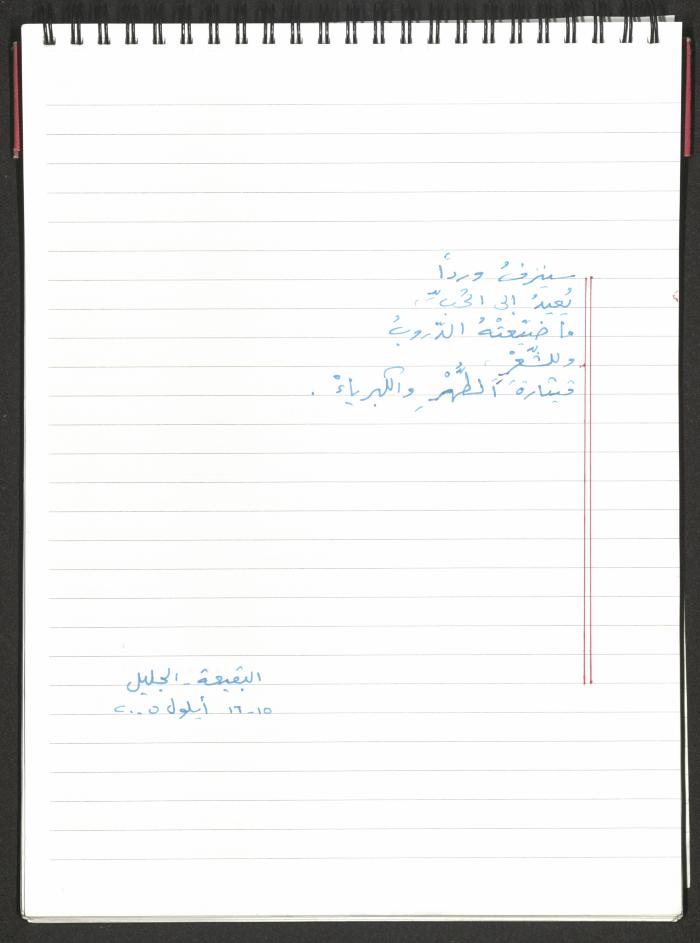 سينزفُ ورداً
يُعيدُ إلى الحُبِّ،
ما ضيّعتْهُ الدّروبُ
وللشّعْرِ،
قيثارةَ الطُّهْرِ والكبرياءْ.
البقيعة - الجليل
١٥-١٦ أيلول ٢٠٠٥